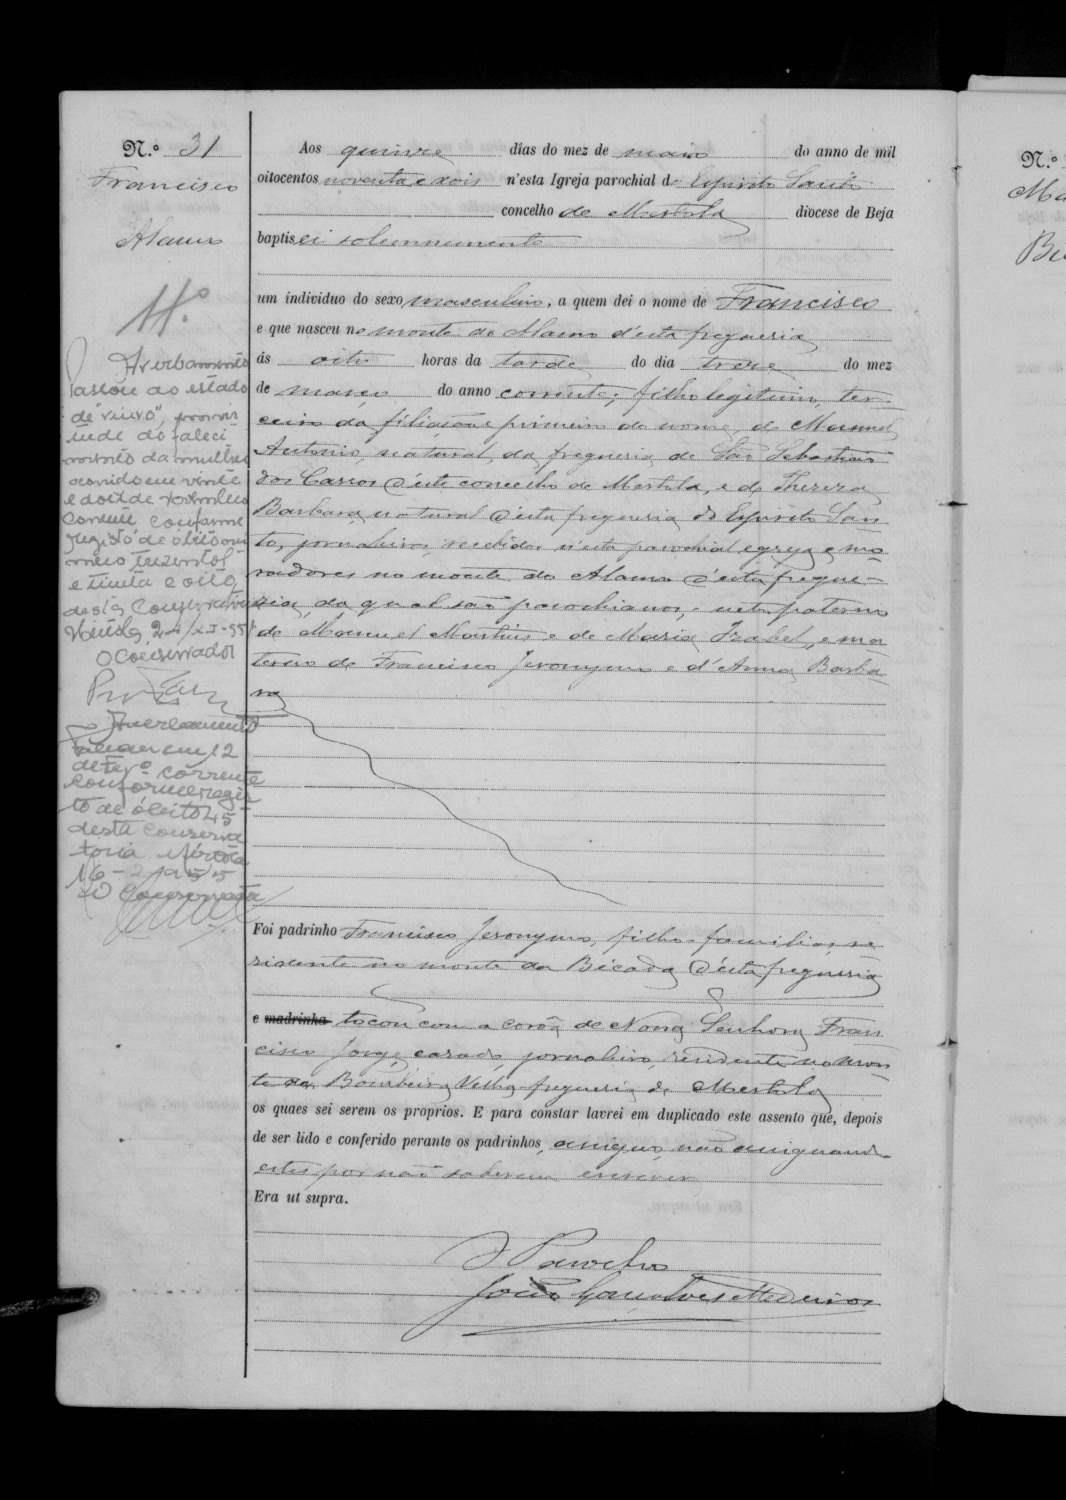 N.º 31
Francisco
Alamo
Aos quinze dias do mez de maio do anno de mil
oitocentos noventa e dois n'esta Igreja parochial d- Espirito Santo
concelho de Mertola diocese de Beja
baptisei solemnemente
um individuo do sexo masculino, a quem dei o nome de Francisco
e que nasceu no monte do Alamo d'esta freguesia
ás oito horas da tarde do dia treze do mez
de março do anno corrente, filho legitimo, ter-
ceiro da filiação e primeiro do nome, de Manuel
Antonio, natural da freguesia de São Sebastião
dos Carros d'este concelho de Mertola, e de Thereza
Barbara natural d'esta freguesia do Espirito San-
to, jornaleiros, recebidos n'esta parochial egreja e mo-
radores no monte do Alamo d'esta fregue-
sia, da qual são parochianos; neto paterno
de Manuel Martins e de Maria Izabel, e ma-
terno de Francisco Jeronymo e d'Anna Barba-
ra
Foi padrinho Francisco Jeronymo, filho-familias, re-
sidente no monte da Bicada d'esta freguesia
e madrinha tocou com a corôa de Nossa Senhora Fran-
cisco Jorge, casado, jornaleiro, residente no mon-
te da Bombeira Velha freguesia de Mertola
os quaes sei serem os proprios. E para constar lavrei em duplicado este assento que, depois
de ser lido e conferido perante os padrinhos, assigno, não assignando
estes por não saberem escrever
Era ut supra.
O Parocho
João Gonçalves Medeiros
Averbamento
Passou ao estado
de "viuvo", por vir-
tude do faleci-
mento da mulher
ocorrido em vinte
e dois de novembro
corrente conforme
registo de obito nu-
mero trezentos
e trinta e oito
desta Conservatoria
Mértola, 24/XI-55
O Conservador
Averbamento
Faleceu em 12
de Fevº corrente
conforme regis-
to de óbito 45
desta conserva-
toria Mértola
16-2-1955
O Conservador
Nº
Ma